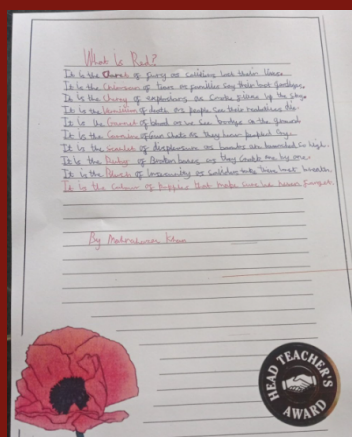 What is Red?
It is the of fury as soldiers lost their lives.
It is the Crimson of tears as families say their last goodbyes.
It is the Cherry of explosions as smoke filled up the sky.
It is the Vermilion of as people see their radiating
It is the Garnet of blood as we see bodies on the ground
It is the of Gun Shots as they hear peoples Cry.
It is the Scarlet of desperation as bombs are so high.
It is the Ruby of Broken bones, as they crack one by one.
It is the Blush of insecurity as Soldiers take their last breath.
It is the Colour of Poppies that make sure we never Forget.
By Khan
HEAD TEACHER'S
AWARD